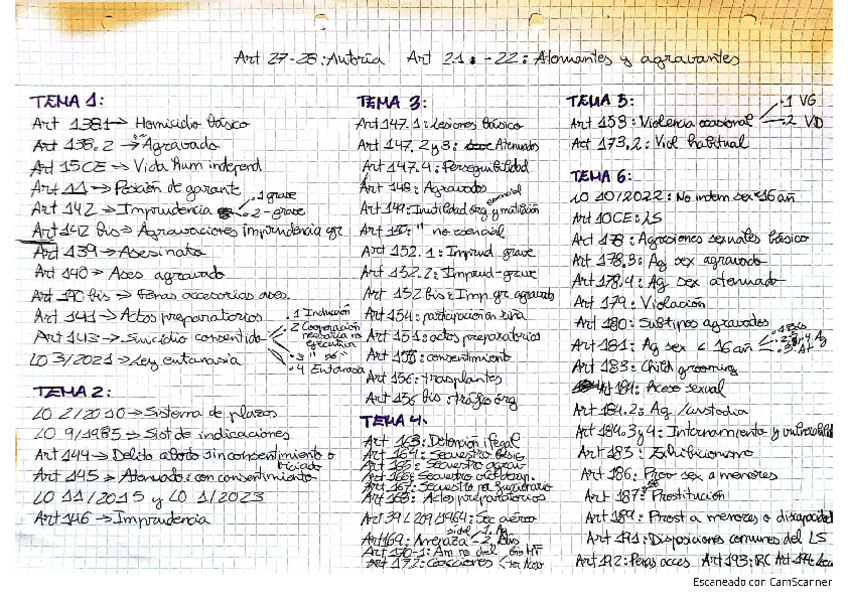 Art 27-28: Autoría Art 21 -22: Atenuantes y agravantes
TEMA 1:
Art 138.1 → Homicidio básico
Art 138.2 → Agravado
Art 15CE → Vida hum independ
Art 11 → Posición de garante
Art 142 → Imprudencia .1 grave
.2 - grave
Art 142 bis → Agravaciones imprudencia gr
Art 139 → Asesinato
Art 140 → Ases agravado
Art 140 bis → Penas accesorias ases.
Art 141 → Actos preparatorios
Art 143 → Suicidio consentido
.1 Inducción
.2 Cooperación necesaria no ejecutiva
.3 " "si"
.4 Eutanasia
LO 3/2021 → Ley eutanasia
TEMA 2:
LO 2/2010 → Sistema de plazos
LO 9/1985 → Sist de indicaciones
Art 144 → Delito aborto sin consentimiento o viciado
Art 145 → Atenuado: con consentimiento
LO 11/2015 y LO 1/2023
Art 146 → Imprudencia
TEMA 3:
Art 147.1: Lesiones básico
Art 147. 2 y 3: Atenuados
Art 147.4: Perseguibilidad
Art 148: Agravados
Art 149: Inutilidad órg y mutilación esencial
Art 150: " no esencial
Art 152.1: Imprud grave
Art 152.2: Imprud-grave
Art 152 bis: Imp gr agravado
Art 154: participación en riña
Art 151: actos preparatorios
Art 155: consentimiento
Art 156: trasplantes
Art 156 bis: tráfico órg
TEMA 4:
Art 163: Detención ilegal
Art 164: Secuestro básico
Art 165: Secuestro agrav
Art 166: Secuestro
Art 167: Secuestro por funcionario
Art 168: Actos preparatorios
Art 39 L 209/1964: Sec aéreo
Art 169: Amenaza 1. 2.
Art 170-1: Am no del
Art 172: Coacciones
TEMA 5:
Art 153: Violencia ocasional .1 VG
.2 VD
Art 173.2: Viol habitual
TEMA 6:
LO 10/2022: No indem sex <16 añ
Art 10CE: LS
Art 178: Agresiones sexuales básico
Art 178.3: Ag sex agravado
Art 178.4: Ag sex atenuado
Art 179: Violación
Art 180: Subtipos agravados
Art 181: Ag sex < 16 añ
Art 183: Child grooming
Art 184: Acoso sexual
Art 184.2: Ag /custodia
Art 184.3 y 4: Internamiento y vulnerabilid
Art 185: Exhibicionismo
Art 186: Prov sex a menores
Art 187: Prostitución
Art 189: Prost a menores o discapacidad
Art 191: Disposiciones comunes del LS
Art 192: Penas acces Art 193: RC Art 194:
Escaneado con CamScanner